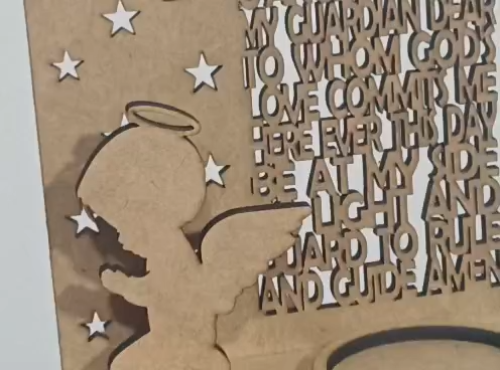 MY GUARDIAN DEAR
TO WHOM GOD'S
LOVE COMMITS ME
HERE EVER THIS DAY
BE AT MY SIDE
LIGHT AND
GUARD TO RULE
AND GUIDE AMEN